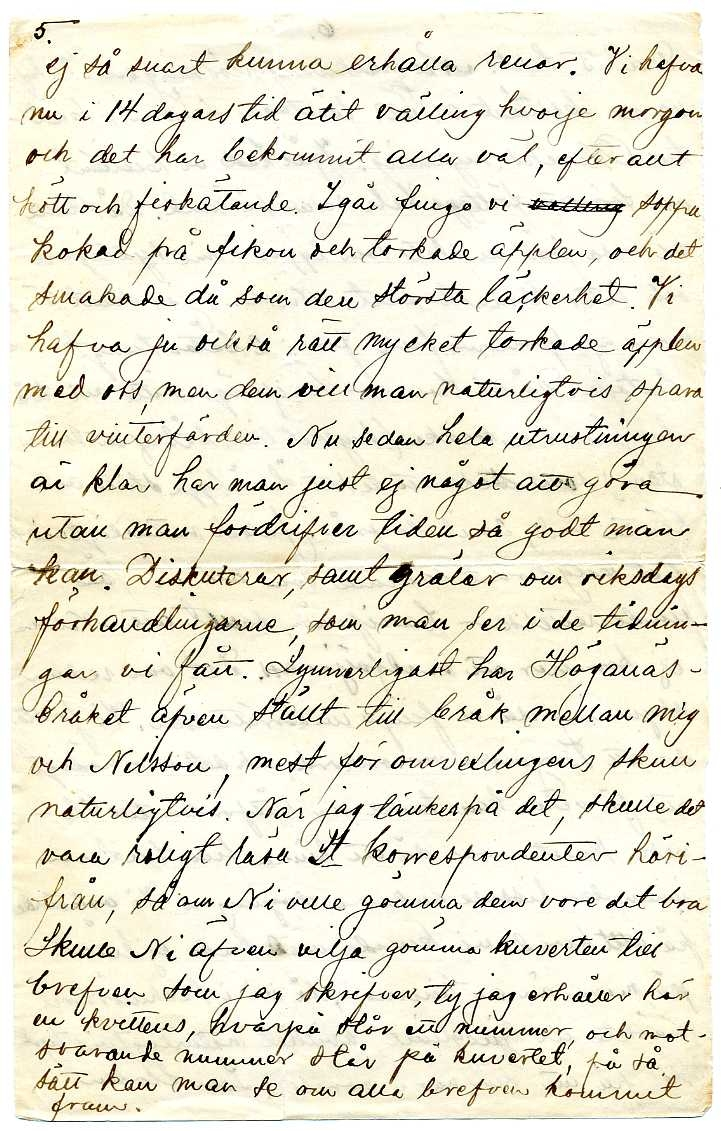 5.
ej så snart kunna erhålla renar. Vi hafva
nu i 14 dagars tid ätit välling hvarje morgon
och det har bekommit alla väl, efter allt
kött och fiskätande. Igår fingo vi välling soppa
kokad på fikon och torkade äpplen, och det
smakade då som den största läckerhet. Vi
hafva ju också rätt mycket torkade äpplen
med oss, men dem vill man naturligtvis spara
till vinterfärden. Nu sedan hela utrustningen
är klar har man just ej något att göra
utan man fördrifver tiden så godt man
kan. Diskuterar, samt grälar om riksdags
förhandlingarne, som man ser i de tidnin-
gar vi fått. Synnerligast har Höganäs-
bråket äfven ställt till bråk mellan mig
och Nilsson, mest för omvexlingens skull
naturligtvis. När jag tänker på det, skulle det
vara roligt läsa korrespondenter häri-
från, så om Ni ville gömma dem vore det bra
Skulle Ni äfven vilja gömma kuverten till
brefven som jag skrifver, ty jag erhåller här
en kvittens, hvarpå står ett nummer, och mot-
svarande nummer står på kuvertet, på så
sätt kan man se om alla brefven kommit
fram.